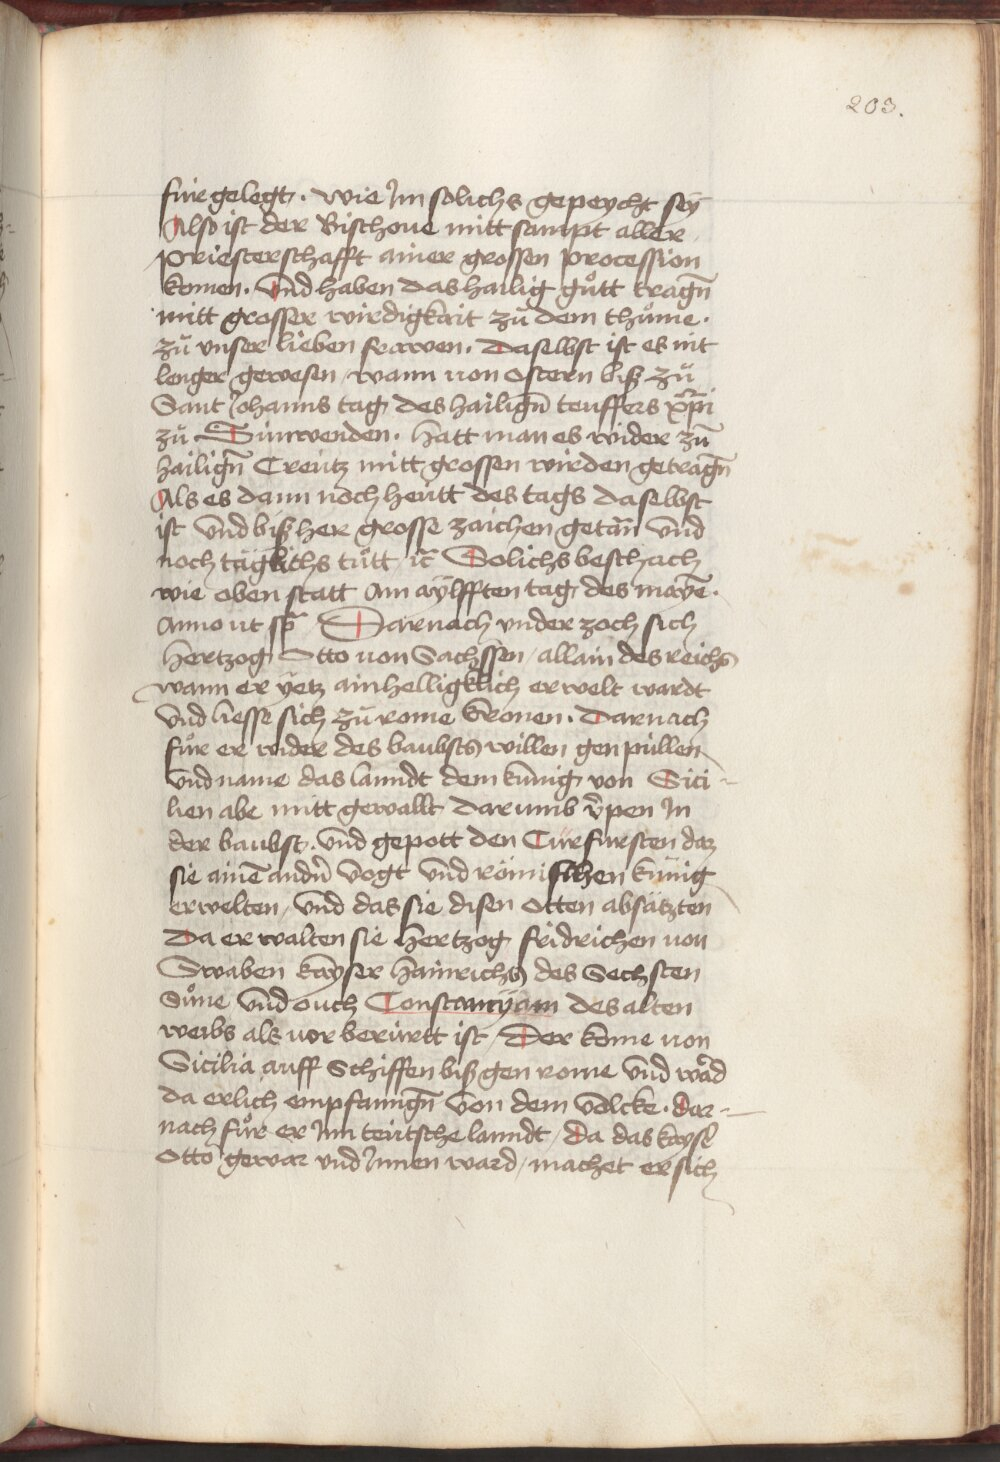 203.
fürgelegt. wie Jm sölichs gepeycht seÿ
Also ist der Bischoue mitt sampt aller
priesterschafft ainer grossen procession
komen. Vnd haben das hailig gůtt tragn̄
mitt grosser wirdigkait zů dem thůme.
zů vnser lieben frawen. Daselbst ist es nit
lenger gewesen / wann von Ostern biß zů
Sant Johanns tag des hailign̄ teuffers xp̄i
zů Sunwenden. hatt man es wider zů
hailign̄ Creutz mitt grossen wirden getragn̄
Als es dann noch heutt des tags daselbst
ist Vnd biß her grosse zaichen getān Vnd
noch täglichs tůtt / rc̄ Solichs beschach
wie oben statt Am aÿlfften tag des mayē.
Anno ut sp̄ Darnach vnder zoch sich
Hertzog Otto von Sachssen / allain des reichs
wann er ÿetz ainhelligklich erwelt wardt
Vnd liesse sich zů rome krönen. Darnach
fůr er wider des baubsts willen gen püllen
Vnd name das lanndt dem künig von Sici-
lien abe mitt gewallt Darumb v̄pen In
der baubst. Vnd gepott den Curfürsten daz
sie ainē andn̄ Vogt Vnd römischen künig
erwelten / Vnd das sie disen Otten absätzten
Da erwalten sie Hertzog fridrichen von
Swaben kayser Hainrichs des Sechsten
Sůne Vnd ouch Constancÿam des alten
weibs als vor berürtt ist / Der kome von
Sicilia auff Schiffen biß gen rome Vnd ward
da erlich empfanngn̄ Von dem Volcke. Dar-
nach fůr er Jnn teutsche lanndt / Da das kays̄
Otto gewar vnd Jnnen ward / machet er sich